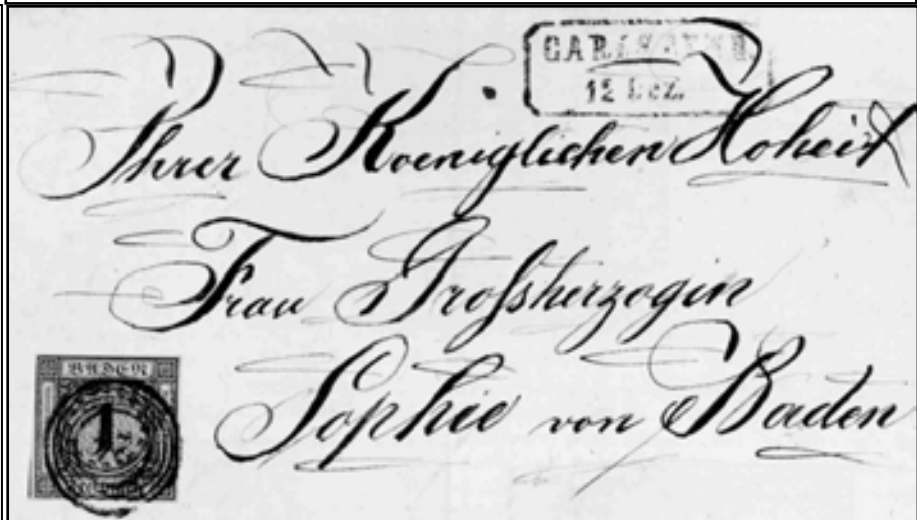 CARLSRUHE
12 Dez.
Ihrer Koeniglichen Hoheit
Frau Grossherzogin
Sophie von Baden
BADEN
1